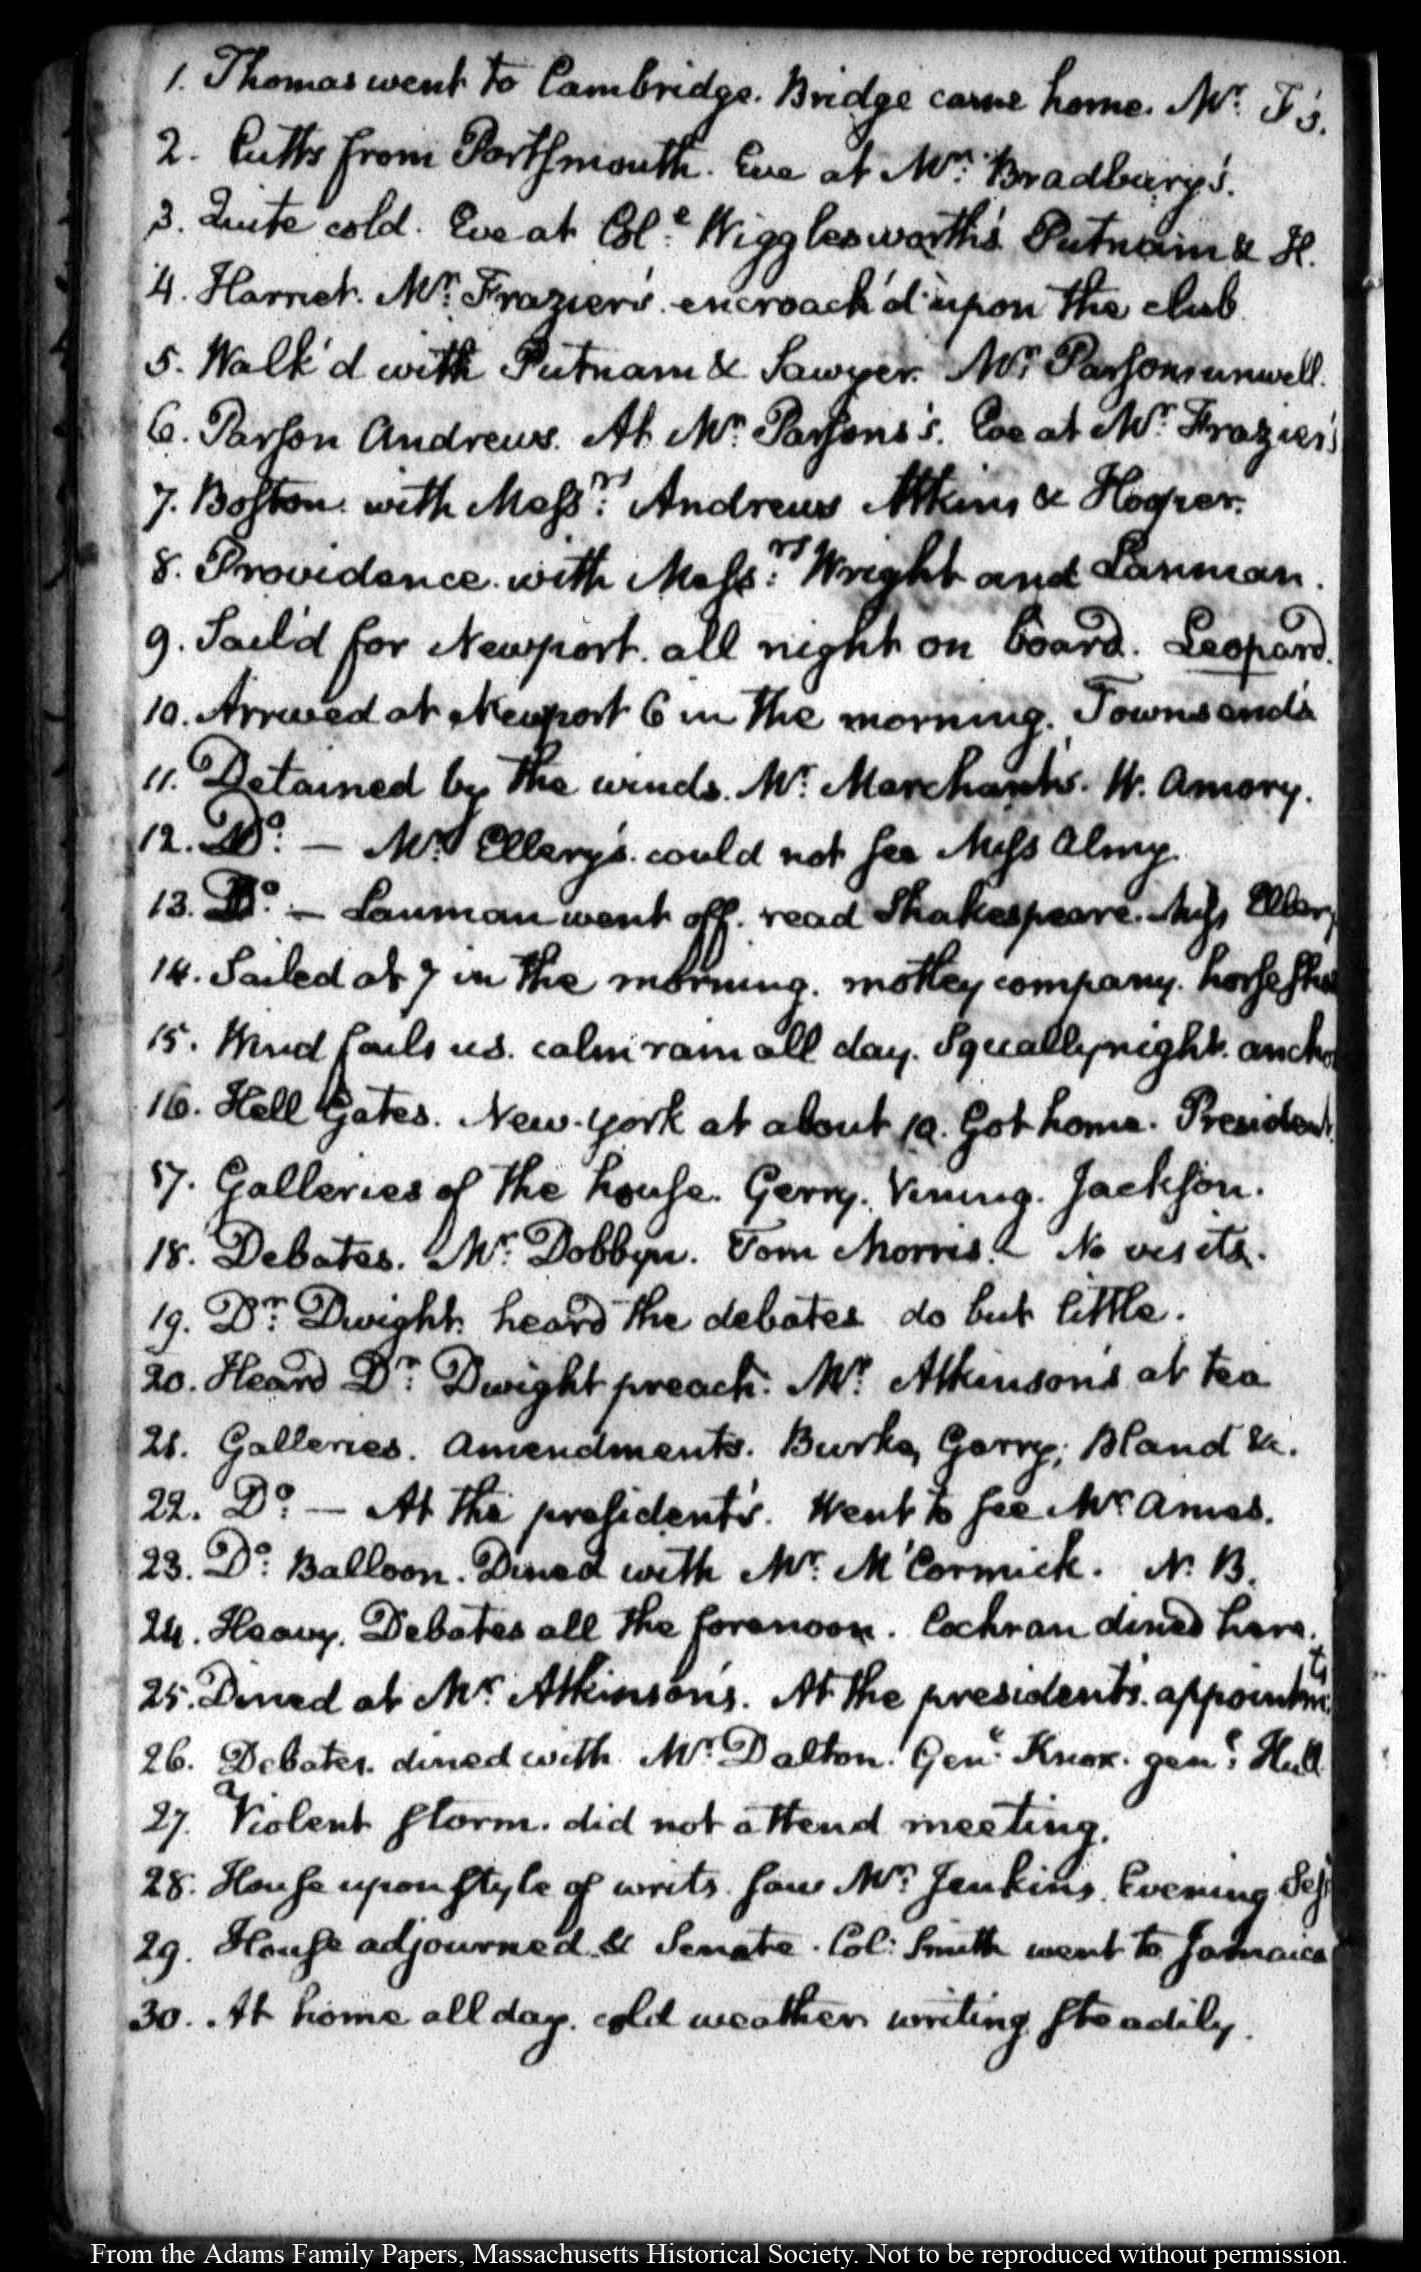 1. Thomas went to Cambridge. Bridge came home. Mr. T's.
2. Cutts from Portsmouth. Eve at Mr. Bradbury's.
3. Quite cold. Eve at Col.e Wigglesworth's Putnam & H.
4. Harriet. Mr. Frazier's. encroach'd upon the club
5. Walk'd with Putnam & Sawyer. Mr. Parsons unwell.
6. Parson Andrews. At Mr. Parsons's. Eve at Mr. Frazier's
7. Boston. with Messrs. Andrews Atkins & Hooper.
8. Providence. with Messrs. Wright and Lanman.
9. Sail'd for Newport. all night on board. Leopard.
10. Arrived at Newport 6 in the morning. Townsend's
11. Detained by the winds. Mr. Marchant's. W. Amory.
12. Do. — Mr. Ellery's. could not see Miss Almy.
13. Do. — Lanman went off. read Shakespeare. Miss Ellery
14. Sailed at 7 in the morning. motley company. horse
15. Wind fails us. calm rain all day. Squally night.
16. Hell Gates. New-York at about 10. Got home. President
17. Galleries of the house. Gerry. Vining. Jackson.
18. Debates. Mr. Dobbyn. Tom Morris. No visits.
19. Dr. Dwight. heard the debates do but little.
20. Heard Dr. Dwight preach. Mr. Atkinson's at tea
21. Galleries. Amendments. Burke, Gerry, Bland &c.
22. Do. — At the president's. Went to see Mr. Ames.
23. Do. Balloon. Dined with Mr. M'Cormick. N. B.
24. Heavy. Debates all the forenoon. Cochran dined here.
25. Dined at Mr. Atkinson's. At the president's. appointmts
26. Debates. dined with Mr. Dalton. Genl. Knox. genl. Hull
27. Violent storm. did not attend meeting.
28. House upon style of writs. saw Mr. Jenkins. Evening Sess
29. House adjourned & Senate. Col: Smith went to Jamaica
30. At home all day. cold weather writing steadily.
From the Adams Family Papers, Massachusetts Historical Society. Not to be reproduced without permission.